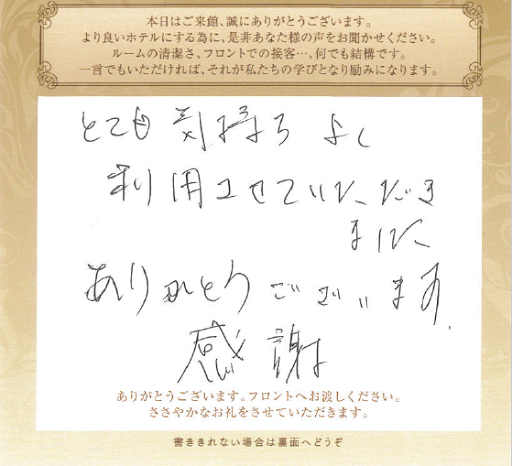 本日はご来館、誠にありがとうございます。
より良いホテルにする為に、是非あなた様の声をお聞かせください。
ルームの清潔さ、フロントでの接客…、何でも結構です。
一言でもいただければ、それが私たちの学びとなり励みになります。
とても気持ちよく
利用させていただき
ました
ありがとうございます.
感謝
ありがとうございます。フロントへお渡しください。
ささやかなお礼をさせていただきます。
書ききれない場合は裏面へどうぞ